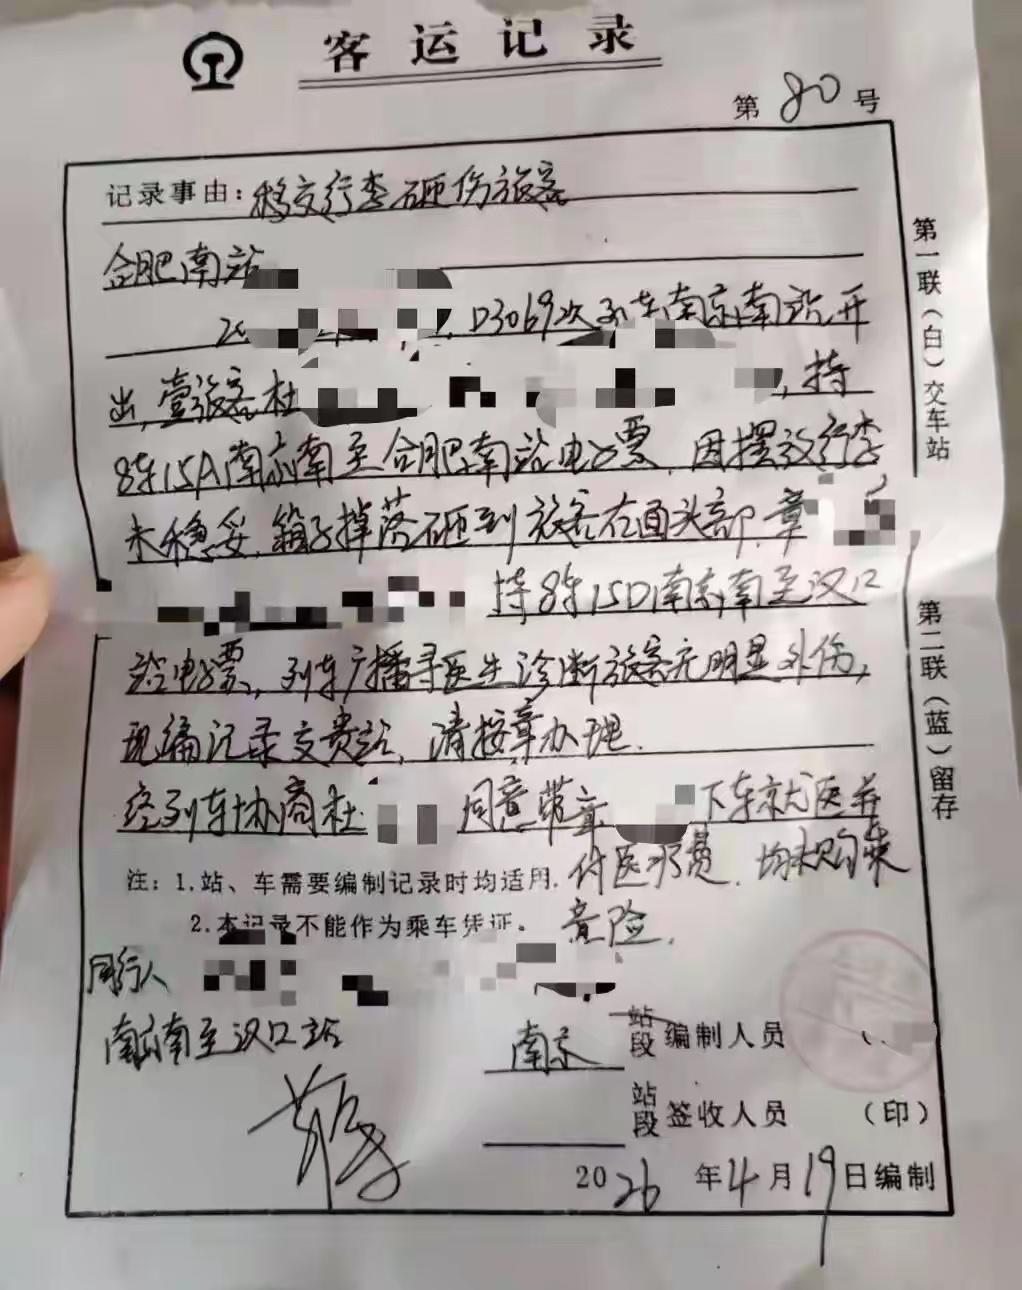 客运记录
第 80 号
记录事由：移交行李砸伤旅客
合肥南站
20 D3069次列车南京南站开
出，壹旅客杜 ，持
8车15A南京南至合肥南站电子票，因摆放行李
未稳妥，箱子掉落砸到旅客右面头部，章
持8车15D南京南至汉口
站电子票，列车广播寻医生诊断旅客无明显外伤，
现编记录交贵站，请按章办理.
经列车协商杜 同意带章 下车就医并
付医疗费，均未购乘
意险.
注：1.站、车需要编制记录时均适用.
2.本记录不能作为乘车凭证。
同行人
南京南至汉口站
南京 站段 编制人员
站段 签收人员 （印）
2026年4月19日编制
第一联（白）交车站
第二联（蓝）留存